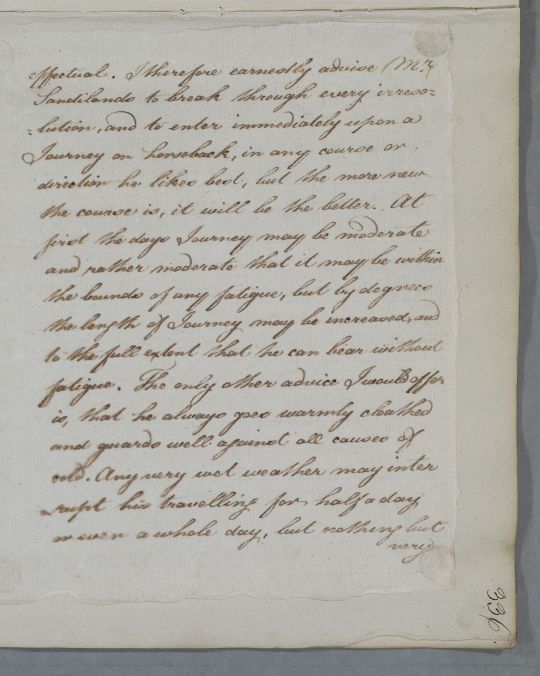 effectual. I therefore earnestly advise Mr.
Sandilands to break through every irreso-
-lution, and to enter immediately upon a
Journey on horseback, in any course or
direction he likes best, but the more new
the course is, it will be the better. At
first the days Journey may be moderate
and rather moderate that it may be within
the bounds of any fatigue, but by degrees
the length of Journey may be increased, and
to the full extent that he can bear without
fatigue. The only other advice I would offer
is, that he always goes warmly cloathed
and guards well against all causes of
cold. Any very wet weather may inter
rupt his travelling for half a day
or even a whole day, but nothing but
very
336